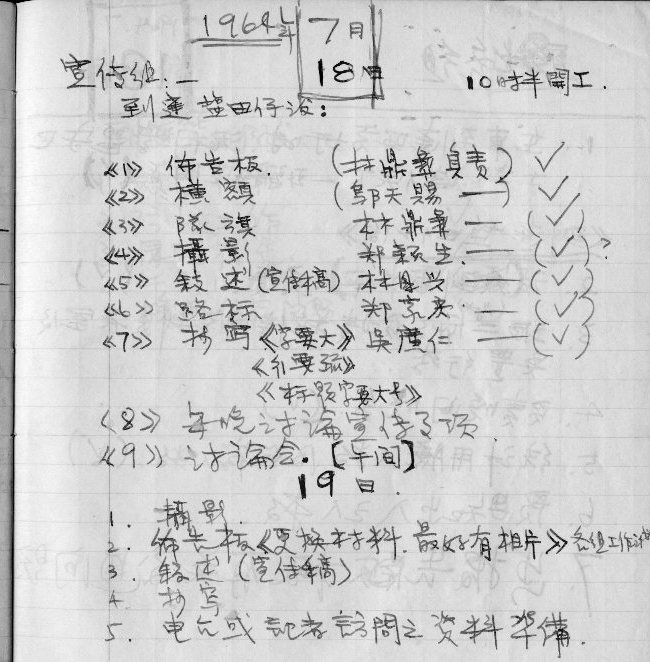 1964年 7月
18日
宣传组:— 10时半開工.
到達 盐田仔后:
《1》 佈告板. (林鼎彝負責) ✓
《2》 橫額 (鄔天賜 —) ✓
《3》 隊旗 林鼎彝 — (✓)
《4》 攝影 郑 生. — (✓)?
《5》 敍述 (宣传稿) 林 兴 — (✓)
《6》 路标 郑 — (✓)
《7》 抄写 《字要大》 吳 仁 — (✓)
《行要疏》
《标题字要大号》
《8》 每晚讨論宣传事项
《9》 讨論会. [午间]
19日.
1. 攝影.
2. 佈告板《更换材料. 最好有相片》各組工作
3. 敍述 (宣传稿)
4. 抄写
5. 电台或記者訪問之資料準備.